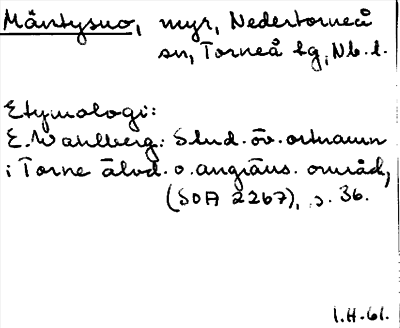 Mäntysuo, myr, Nedertorneå
sn, Torneå tg, Nb. l.
Etymologi:
E. Wahlberg: Stud. öv. ortnamn
i Torne älvd. o. angräns. områd,
(SOA 2267), s. 36.
I.H.-61.